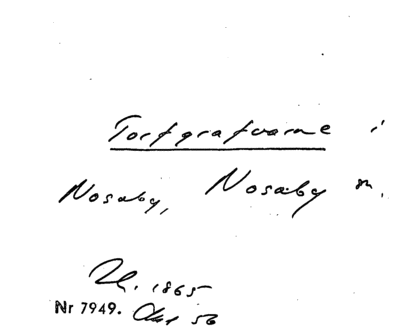 Torfgrafvarne i
Nosaby, Nosaby sn.
1865
Nr 7949.